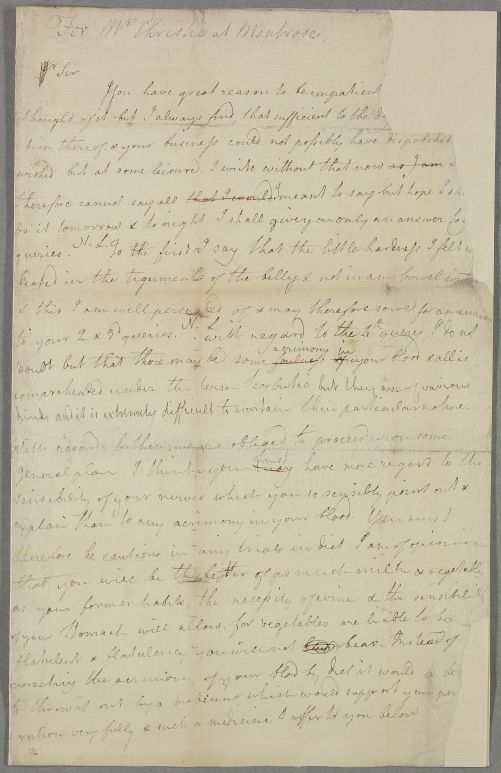 For Mr Christie at Montrose.
Dr Sir
You have great reason to be impatient
thought of it but I always find that sufficient to the d
tion thereof & your business could not possibly have dispatched
wished but at some leisure. I write without that now as I am &
therefore cannot say all that I would I meant to say but hope I sh
do it tomorrow & to night I shall give you only an answer to y
queries. N. 1. To the first I say that the little hardness I felt is
seated in the teguments of the belly & not in any bowel
& this I am well persuaded of & may therefore serve for an answer
to your 2 & 3d queries. N. 4. with regard to the 4th query I do not
doubt but that there may be some acrimony in your blood & all is
comprehended under the term scorbutic but they are of various
kinds and it is extremely difficult to ascertain their particular nature.
With regard to them, we are obliged to proceed upon some
general plan. I think you must have more regard to the
sensibility of your nerves which you so sensibly point out &
explain than to any acrimony in your blood. You must
therefore be cautious in any trials in diet I am of opinion
that you will be the better of as much milk & vegetables
as your former habits, the necessity of wine & the sensibility
of your stomach will allow. for vegetables are liable to be
flatulent & flatulency you will not bear. Instead of
correcting the acrimony of your blod by diet it would be bes
to throw it out by a medicine which would support your per
ration very fully & such a medicine I offer to you below